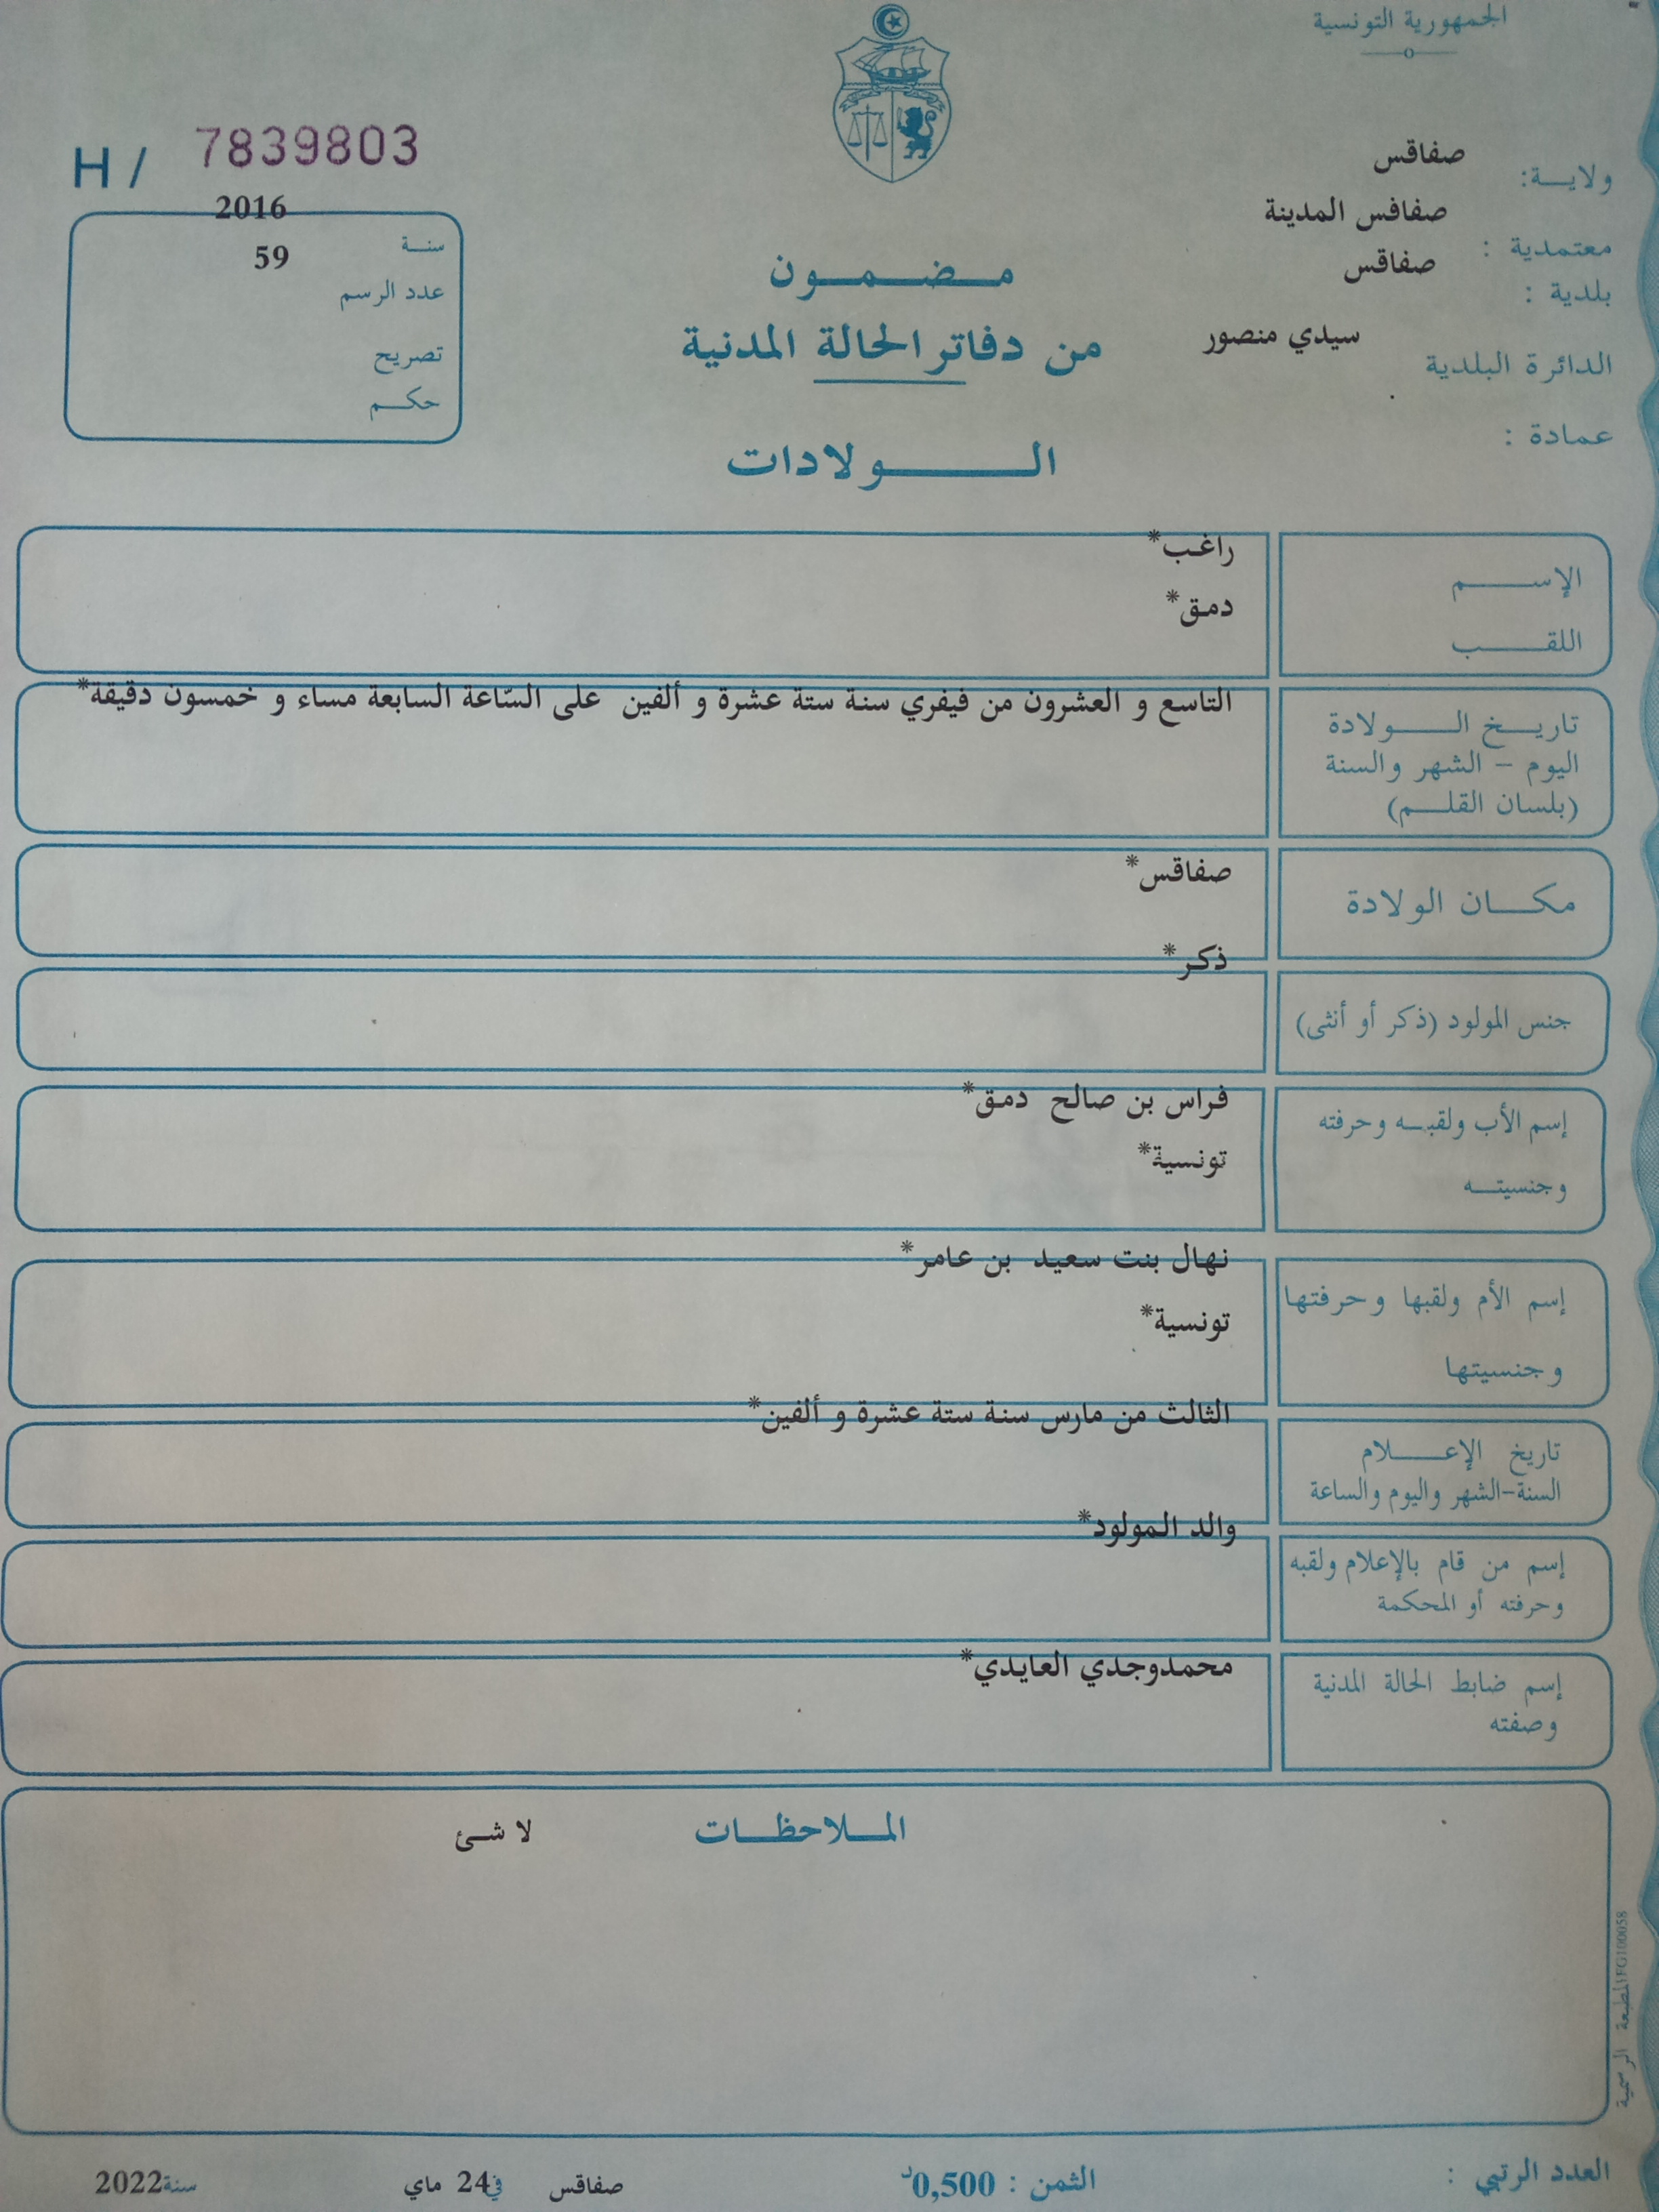 الجمهورية التونسية
H / 7839803
ولايـــة: صفاقس
معتمدية : صفافس المدينة
بلدية : صفاقس
الدائرة البلدية سيدي منصور
عمادة :
سنـــة 2016
عدد الرسم 59
تصريح
حكـــم
مـــضـــمـــون
من دفاتر الحالة المدنية
الـــــولادات
الإســـــم راغب*
اللقـــــب دمق*
تاريـــخ الـــــولادة
اليوم – الشهر والسنة
(بلسان القلـــم)
التاسع و العشرون من فيفري سنة ستة عشرة و ألفين على السّاعة السابعة مساء و خمسون دقيقة*
مكـــان الولادة صفاقس*
جنس المولود (ذكر أو أنثى) ذكر*
إسم الأب ولقبـــه وحرفته فراس بن صالح دمق*
وجنسيتـــه تونسية*
إسم الأم ولقبها وحرفتها نهال بنت سعيد بن عامر*
وجنسيتها تونسية*
تاريخ الإعـــــلام
السنة-الشهر واليوم والساعة
الثالث من مارس سنة ستة عشرة و ألفين*
إسم من قام بالإعلام ولقبه
وحرفته أو المحكمة
والد المولود*
إسم ضابط الحالة المدنية
وصفته
محمدوجدي العايدي*
المـــلاحظـــات لا شئ
المطبعة الرسمية IFG100058
العدد الرتبي :
الثمن : 0,500د
صفاقس في 24 ماي سنة 2022